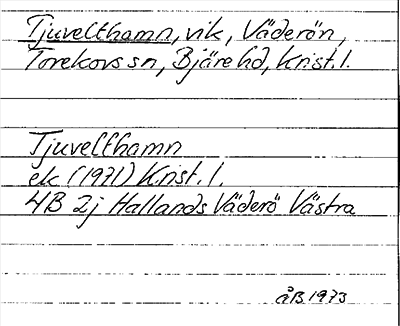 Tjuvelthamn, vik, Väderön,
Torekovs sn, Bjäre hd, Krist. l.
Tjuvelthamn
ek (1971) Krist. l.
4B 2j Hallands Väderö Västra
åB 1973